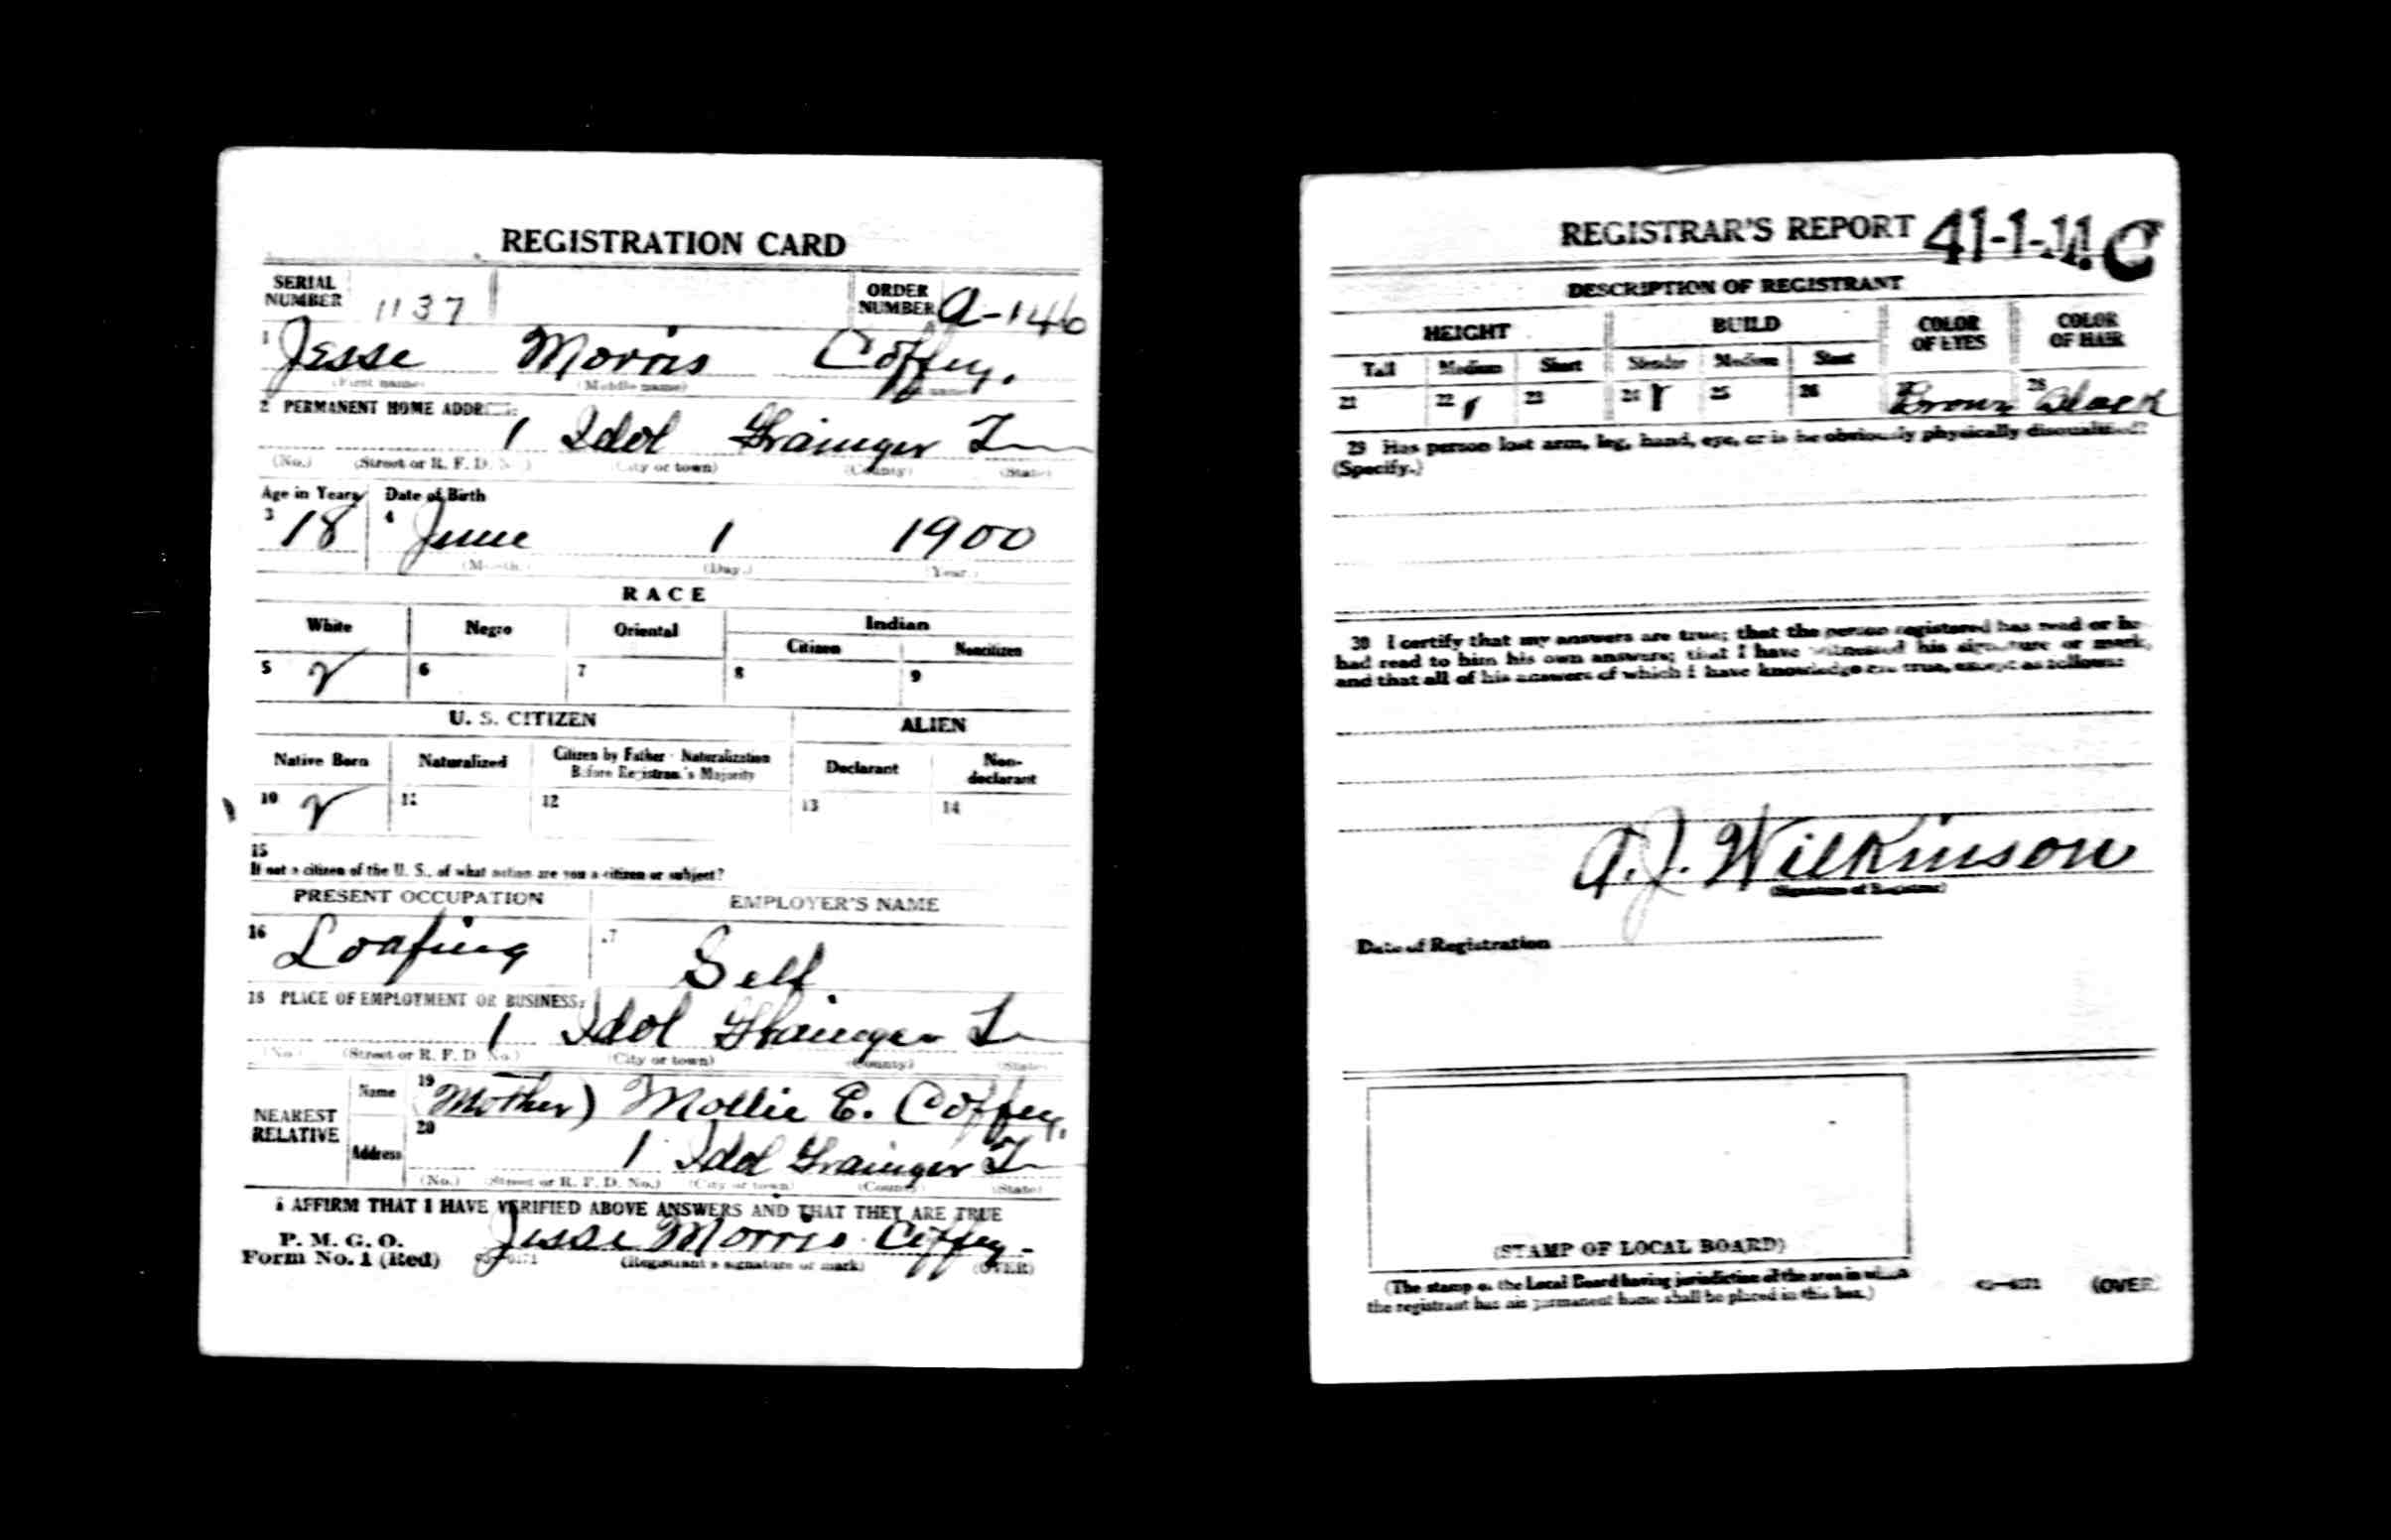 REGISTRATION CARD
SERIAL NUMBER 1137 ORDER NUMBER A-146
1 Jesse Morris Coffey.
(First name) (Middle name) name)
2 PERMANENT HOME ADDRESS:
1 Idol Grainger Tn
(No.) (Street or R. F. D. No.) (City or town) (County) (State)
Age in Years Date of Birth
3 18 4 June 1 1900
(Month.) (Day.) (Year.)
RACE
White Negro Oriental Indian
Citizen Noncitizen
5 ✓ 6 7 8 9
U. S. CITIZEN ALIEN
Native Born Naturalized Citizen by Father's Naturalization Before Registrant's Majority Declarant Non-declarant
10 ✓ 11 12 13 14
15
If not a citizen of the U. S., of what nation are you a citizen or subject?
PRESENT OCCUPATION EMPLOYER'S NAME
16 Loafing 17 Self
18 PLACE OF EMPLOYMENT OR BUSINESS:
1 Idol Grainger Tn
(No.) (Street or R. F. D. No.) (City or town) (County) (State)
NEAREST RELATIVE Name 19 (Mother) Mollie E. Coffey,
Address 20 1 Idol Grainger Tn
(No.) (Street or R. F. D. No.) (City or town) (County) (State)
I AFFIRM THAT I HAVE VERIFIED ABOVE ANSWERS AND THAT THEY ARE TRUE
P. M. G. O.
Form No. 1 (Red) Jesse Morris Coffey.
(Registrant's signature or mark) (OVER)
REGISTRAR'S REPORT 41-1-11. C
DESCRIPTION OF REGISTRANT
HEIGHT BUILD COLOR OF EYES COLOR OF HAIR
Tall Medium Short Slender Medium Stout
21 22 ✓ 23 24 ✓ 25 26 27 Brown 28 Black
29 Has person lost arm, leg, hand, eye, or is he obviously physically disqualified?
(Specify.)
30 I certify that my answers are true; that the person registered has read or has
had read to him his own answers; that I have witnessed his signature or mark,
and that all of his answers of which I have knowledge are true, except as follows:
A. J. Wilkinson
(Signature of Registrar)
Date of Registration
(STAMP OF LOCAL BOARD)
(The stamp of the Local Board having jurisdiction of the area in which
the registrant has his permanent home shall be placed in this box.)
(OVER)